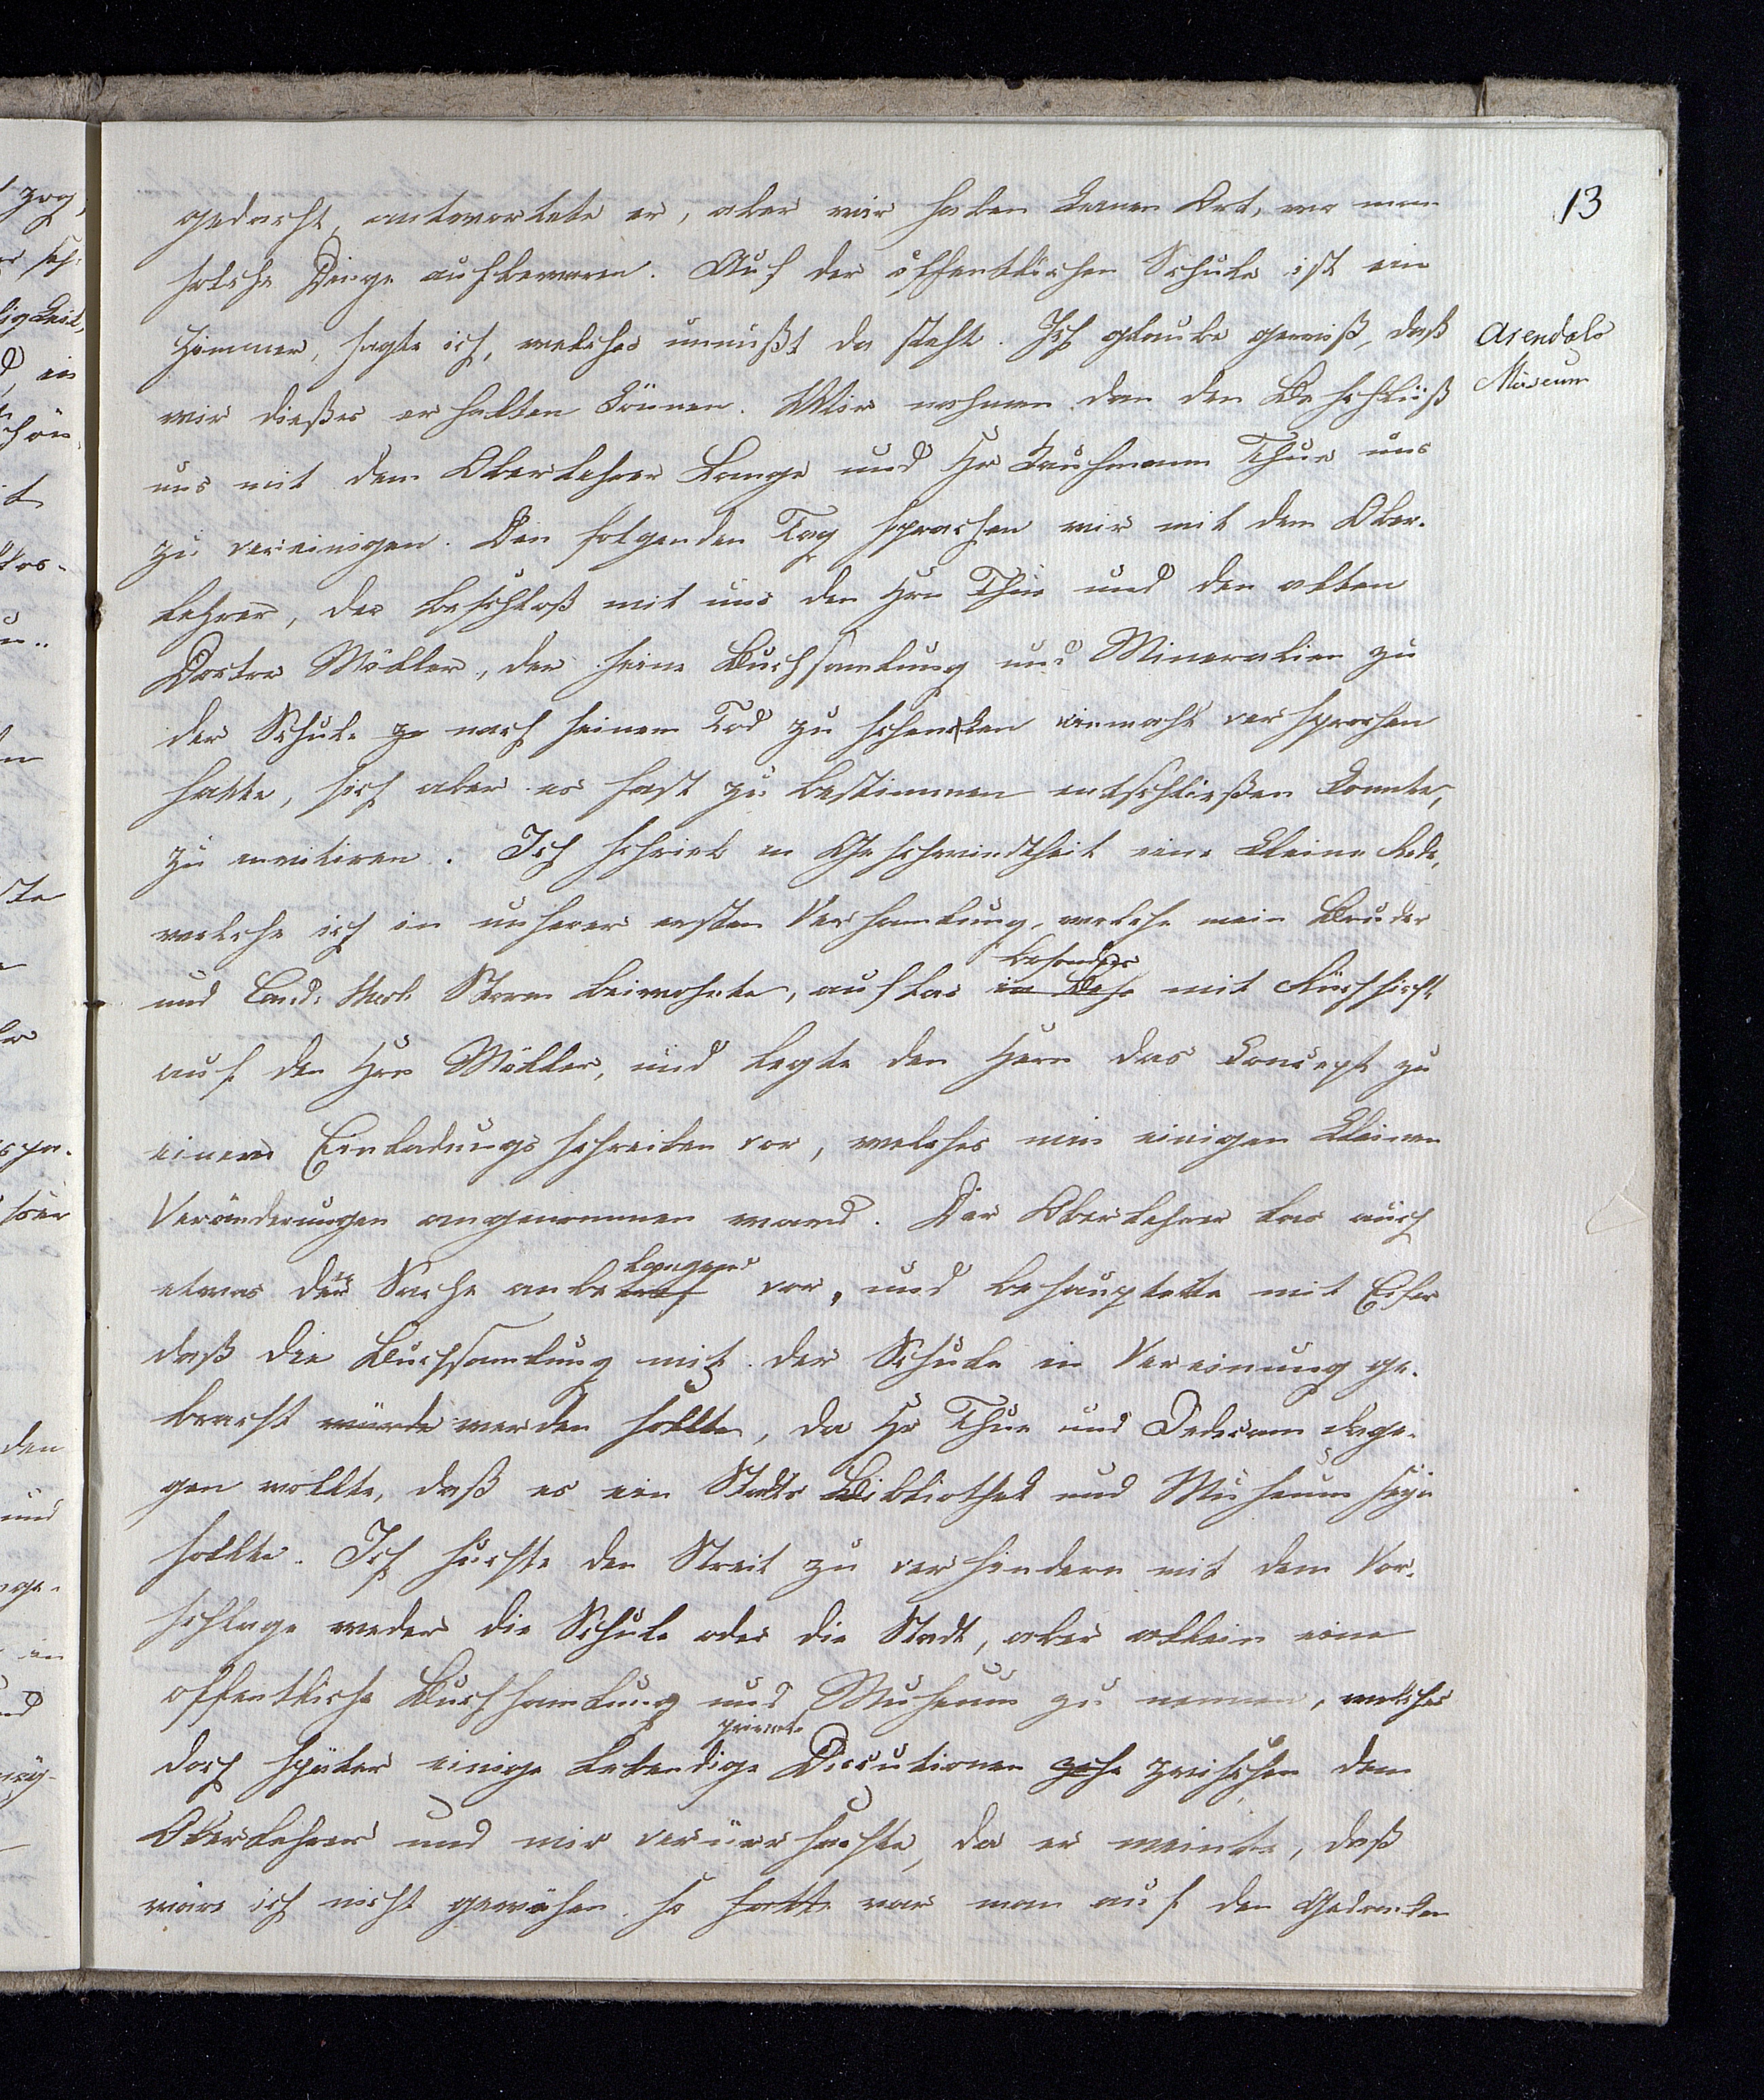 13
gedacht, antwortete er, aber wir haben keinen Ort, wo man
solche Dinge aufbewaren. Auf der öffentlichen Schule ist ein
Zimmer, sagte ich, welches unnußt da steht. Ich glaube gewiß, daß
Arendals
Museum
wir dießes erhalten können. Wir nahmen dan den Beschluß
uns mit dem Oberlehrer Lange und Hr Kaufmann Thue uns
zu vereinigen. Den folgenden Tag sprachen wir mit dem Ober-
lehrer, der beschloß mit uns den Hrn Thue und den alten
Doctor Möller, der seine Buchsamlung und Mineralien zu
der Schule zu nach seinem Tod zu schencken einmahl versprochen
hatte, sich aber es fast zu bestimmen entschließen konnte,
zu invitiren. Ich schrieb in Geschwindtheit eine kleine Rede,
welche ich in unserer ersten Versamlung, welche mein Bruder
besonders
und Cand. Storm beiwohnte, auflas in Bese mit Rücksicht
auf den Hrn Möller, und legte den Herrn das Concept zu
einem Einladungsschreiben vor, welches mit einigen kleinen
Veränderungen angenommen ward. Der Oberlehrer las auch
langend
etwas die Sache anbetraf vor, und behauptette mit Eifer
daß die Buchsamlung mit der Schule in Vereinung ge-
bracht würde werden sollte, da Hr Thue und Dedecam dage-
gen wollte, daß es ein Stadts Bibliothek und Museum seyn
sollte. Ich suchte den Streit zu verhindern mit dem Vor-
schlage weder die Schule oder die Stadt, aber allein eine
offentliche Buchsamlung und Museum zu nennen, welches
private
doch später einige lebendige Discutionen zwischen dem
Oberlehrer und mir verürrsachte, da er meinte, daß
wäre ich nicht gewesen so hatte war man auf den Gedanken